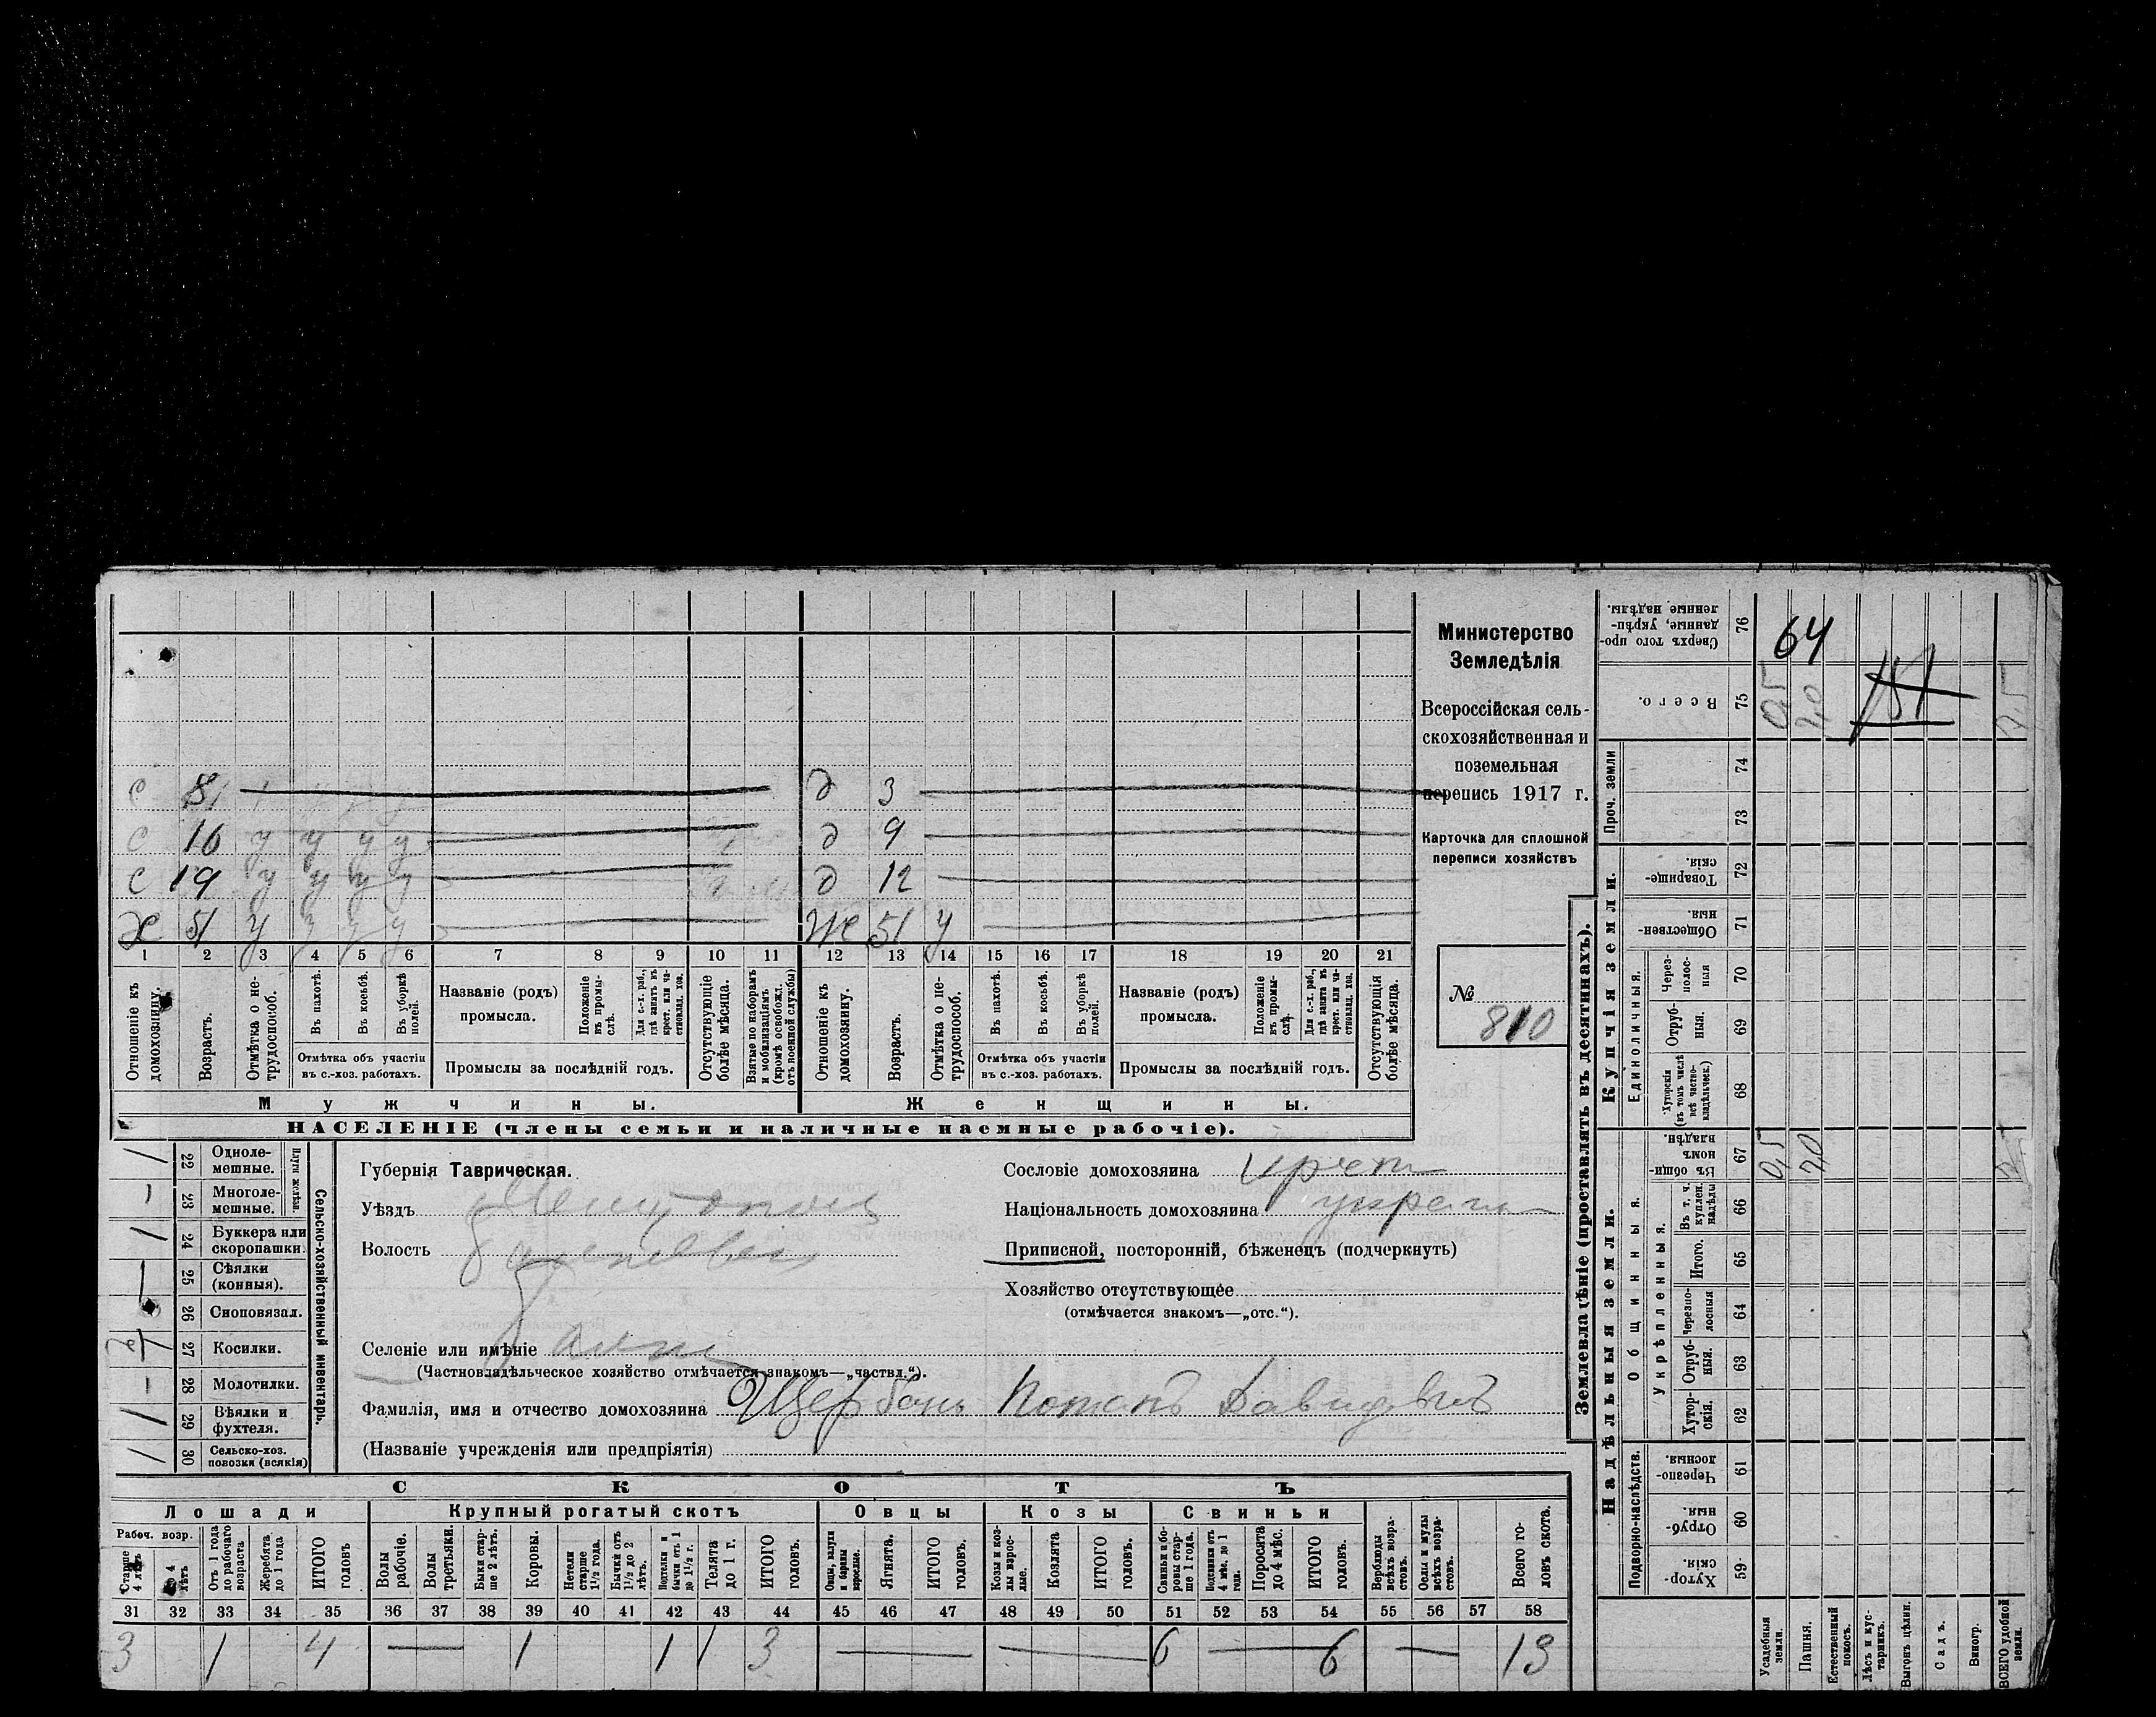 Министерство
Земледѣлія
Всероссійская сель-
скохозяйственная и
поземельная
перепись 1917 г.
Карточка для сплошной
переписи хозяйствъ
№
810
с 8 д 3
с 16 у у у у д 9
с 19 у у у у д 12
Х 51 у у у у Же 51 у
1 2 3 4 5 6 7 8 9 10 11 12 13 14 15 16 17 18 19 20 21
Отношеніе къ домохозяину.
Возрастъ.
Отмѣтка о не-трудоспособ.
Въ пахотѣ.
Въ косьбѣ.
Въ уборкѣ полей.
Отмѣтка объ участіи
въ с.-хоз. работахъ.
Названіе (родъ)
промысла.
Положеніе въ промы-слѣ.
Для с.-х. раб., гдѣ занятъ въ крест. или ча-стновлад. хоз.
Промыслы за послѣдній годъ.
Отсутствующіе болѣе мѣсяца.
Взятые по наборамъ и мобилизаціямъ (кромѣ освобожд. отъ военной службы)
Отношеніе къ домохозяину.
Возрастъ.
Отмѣтка о не-трудоспособ.
Въ пахотѣ.
Въ косьбѣ.
Въ уборкѣ полей.
Отмѣтка объ участіи
въ с.-хоз. работахъ.
Названіе (родъ)
промысла.
Положеніе въ промы-слѣ.
Для с.-х. раб., гдѣ занята въ крест. или ча-стновлад. хоз.
Промыслы за послѣдній годъ.
Отсутствующія болѣе мѣсяца.
Мужчины. Женщины.
НАСЕЛЕНІЕ (члены семьи и наличные наемные рабочіе).
Сельско-хозяйственный инвентарь.
Плуги желѣзн.
22 Одноле-мешные.
23 Многоле-мешные.
24 Буккера или скоропашки.
25 Сѣялки (конныя).
26 Сноповязал.
27 Косилки.
28 Молотилки.
29 Вѣялки и фухтеля.
30 Сельско-хоз. повозки (всякія)
Губернія Таврическая.
Уѣздъ
Волость
Селеніе или имѣніе
(Частновладѣльческое хозяйство отмѣчается знакомъ—„частвл.“).
Фамилія, имя и отчество домохозяина Щербань Потапъ Давидовичъ
(Названіе учрежденія или предпріятія)
Сословіе домохозяина крест
Національность домохозяина украин
Приписной, посторонній, бѣженецъ (подчеркнуть)
Хозяйство отсутствующее
(отмѣчается знакомъ—„отс.“).
СКОТЪ
Лошади Крупный рогатый скотъ Овцы Козы Свиньи
Рабоч. возр.
Старше 4 лѣтъ
До 4 лѣтъ
Отъ 1 года до рабочаго возраста
Жеребята до 1 года
ИТОГО головъ
Волы рабочіе.
Волы третьяки.
Быки стар-ше 2 лѣтъ.
Коровы.
Нетели старше 1½ года.
Бычки отъ 1½ до 2 лѣтъ.
Подтелки и бычки отъ 1 до 1½ г.
Телята до 1 г.
ИТОГО головъ.
Овцы, валухи и бараны взрослые.
Ягнята.
ИТОГО головъ.
Козы и коз-лы взрос-лые.
Козлята
ИТОГО головъ.
Свиньи и бо-ровы стар-ше 1 года.
Подсвинки отъ 4 мѣс. до 1 года.
Поросята до 4 мѣс.
ИТОГО головъ.
Верблюды всѣхъ возра-стовъ.
Ослы и мулы всѣхъ возра-стовъ.
Всего го-ловъ скота.
31 32 33 34 35 36 37 38 39 40 41 42 43 44 45 46 47 48 49 50 51 52 53 54 55 56 57 58
3 1 4 — 1 1 1 3 — — 6 — 6 — 13
Землевладѣніе (проставлять въ десятинахъ).
Надѣльныя земли. Купчія земли.
Сверхъ того про-данные, укрѣп-ленные надѣлы. 76
64
Всего. 75
151
Проч. земли
74
73
Товарище-скія. 72
Обществен-ныя. 71
Единоличныя.
Через-полос-ныя 70
Отруб-ныя. 69
Хуторскія (въ томъ числѣ всѣ частно-владѣльческ.) 68
Общинныя.
Въ общин-номъ владѣн. 67
0,5 7,0
Укрѣпленныя.
Въ т. ч. куплен. надѣлы 66
Итого. 65
Черезпо-лосныя 64
Отруб-ныя. 63
Хутор-скія. 62
Подворно-наслѣдств.
Черезпо-лосныя. 61
Отруб-ныя. 60
Хутор-скія. 59
Усадебныя земли.
Пашня.
Естественный покосъ.
Лѣсъ и кус-тарникъ.
Выгонъ цѣлин.
Садъ.
Виногр.
ВСЕГО удобной земли.